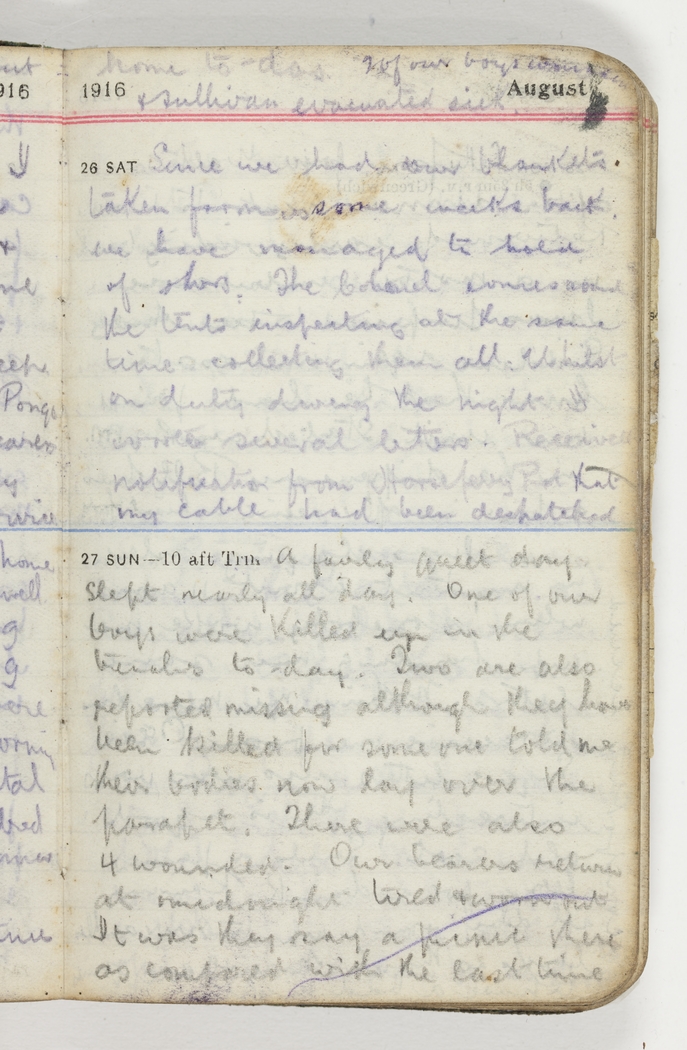 home to-day. 2 of our boys
1916 August
& Sullivan evacuated sick.
26 SAT Since we had our blankets
taken from us some weeks back
we have managed to hold
of others. The Colonel comes round
the tents inspecting at the same
time collecting them all. Whilst
on duty during the night I
wrote several letters. Received
notification from Horseferry Rd that
my cable had been despatched
27 SUN—10 aft Trin A fairly quiet day
slept nearly all day. One of our
boys were killed up in the
trenches to-day. Two are also
reported missing although they have
been killed for some one told me
their bodies now lay over the
parapet. There were also
4 wounded. Our bearers return
at midnight tired & worn out
It was they say a picnic there
as compared with the last time